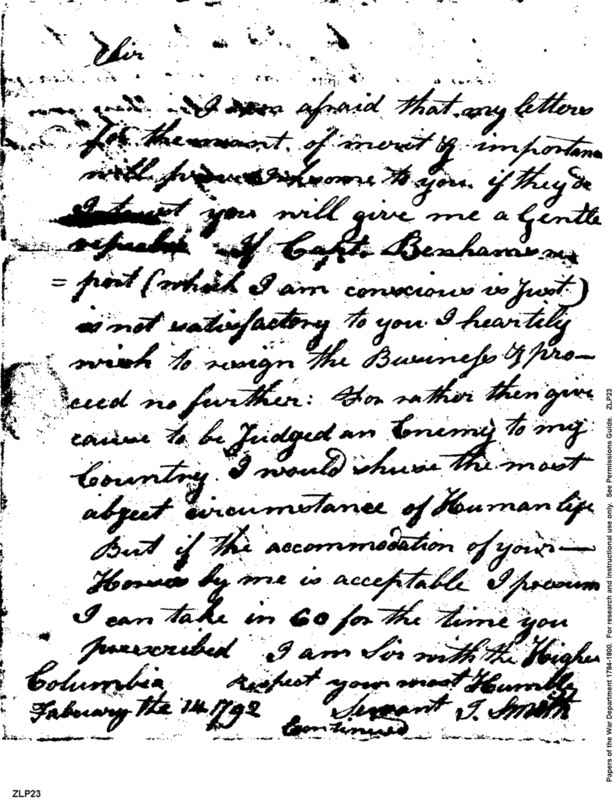 Sir
I am afraid that my letters
for the want of merit & importance
will prove to you if they do
you will give me a Gentle
If Capt. Benhams re
= port (which I am conscious is Just)
is not satisfactory to you I heartily
wish to resign the Business & pro—
ceed no further: For rather then give
cause to be Judged an Enemy to my
Country I would chuse the most
abject circumstance of Human life
But if the accommodation of your—
Horses by me is acceptable I presum
I can take in 60 for the time you
prescribed I am Sir with the Highes
Columbia Respect your most Humble
Fabruary the 14 1792 Servant J. Smith
Continued
Papers of the War Department 1784-1800. For research and instructional use only. See Permissions Guide. ZLP23
ZLP23